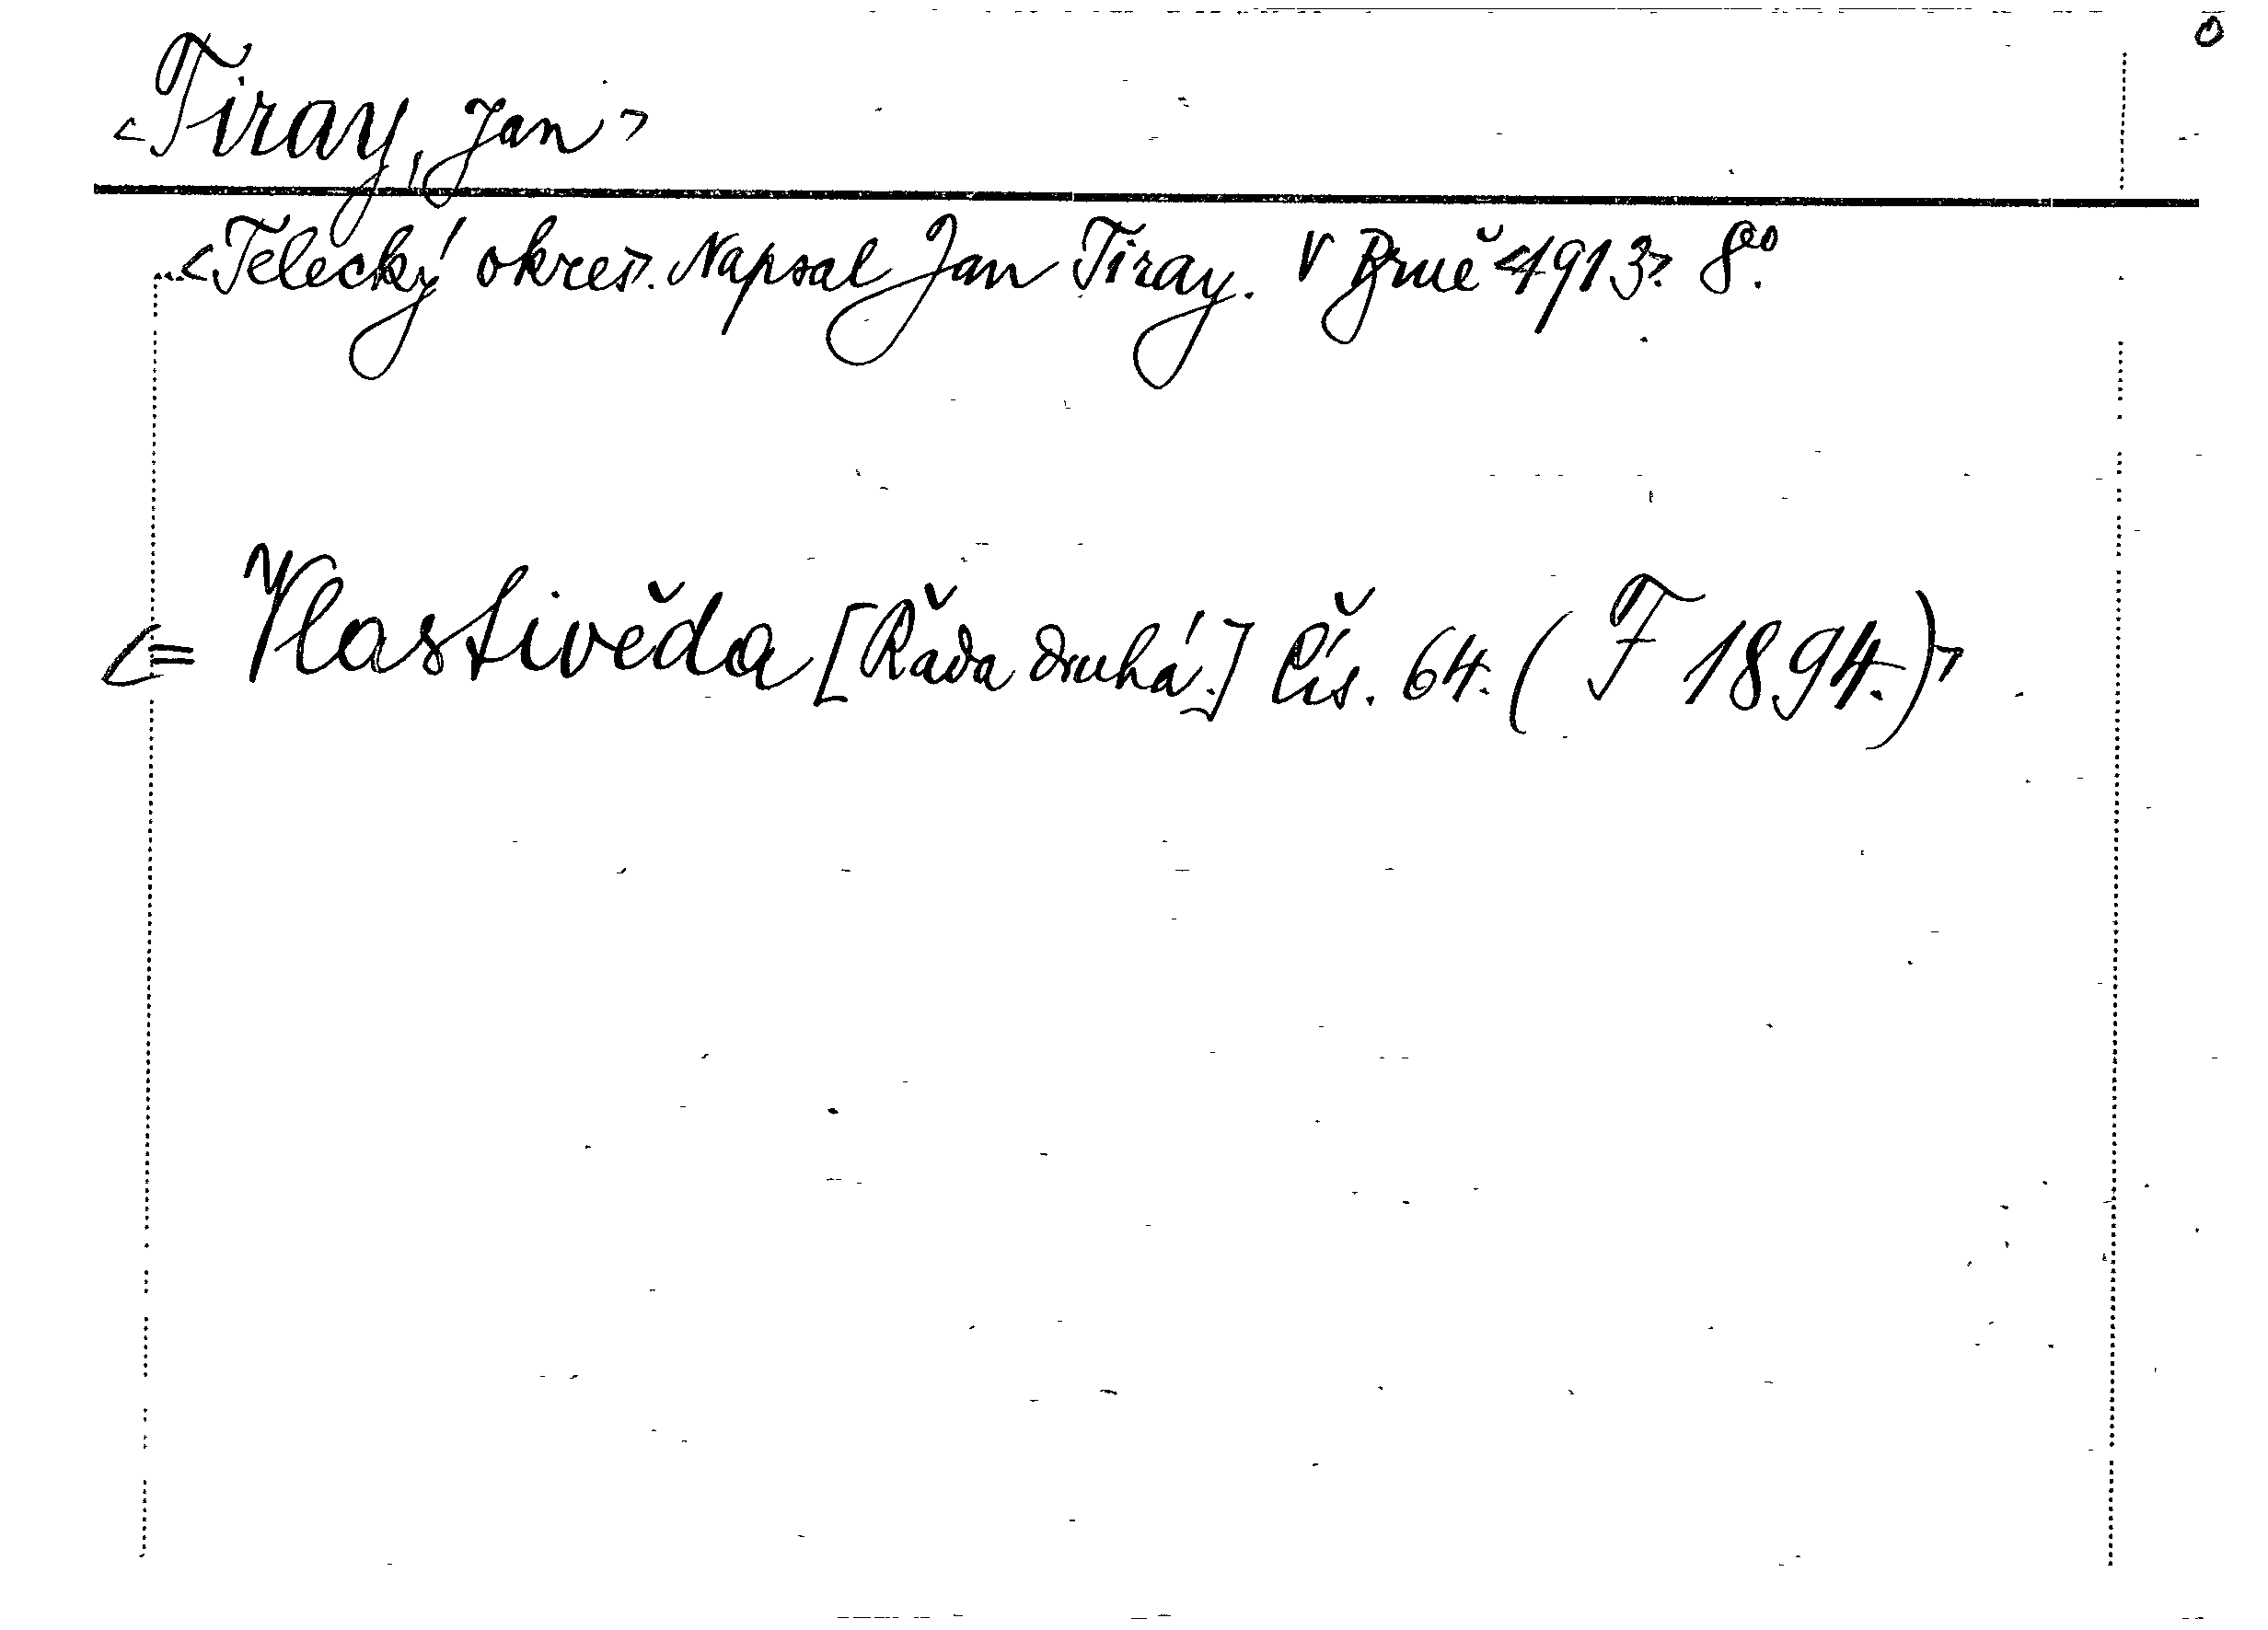 o
<Tiray, Jan>
<Telecký okres>. Napsal Jan Tiray. V Brně <1913>. 8º.
<= Vlastivěda [Řada druhá.] Čís. 64. (F 1894.)>